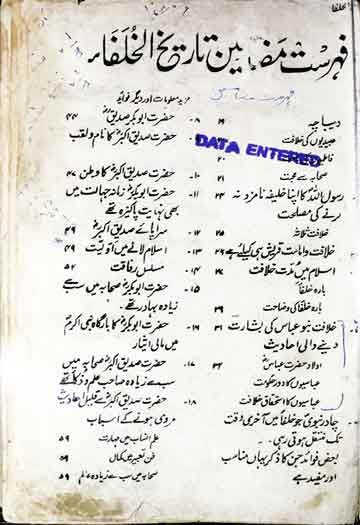 فہرست مضامین تاریخ الخلفاء
DATA ENTERED
دیباچہ ۱۹
عبیدیوں کی خلافت
۲۰
صحابہ سے محبت ۲۱
رسول اللہ کا اپنا خلیفہ نامزد نہ ۲۳
کرنے کی مصلحت
خلافت ثلاثہ ۲۴
خلافت و امامت قریش ہی کیلئے ہے ۲۶
اسلام میں مدت خلافت
بارہ خلفاء ۲۵
بارہ خلفاء کی وضاحت
خلافت بنو عباس کی بشارت ۳۱
دینے والی احادیث
اولاد حضرت عباس
عباسیوں کا دور حکومت
عباسیوں کا استحقاق خلافت
چادر نبوی جو خلفاء میں آخری وقت
تک منتقل ہوتی رہی۔
بعض فوائد جن کا ذکر یہاں مناسب
اور مفید ہے
مزید معلومات اور دیگر فوائد
۸- حضرت ابوبکر صدیق ۴۴
۹- حضرت صدیق اکبر کا نام و لقب
۱۰- حضرت صدیق اکبر کا وطن ۴۷
۱۱- حضرت ابوبکر زمانہ جہالت میں
بھی نہایت پاکیزہ تھے
۱۲- سراپائے صدیق اکبر ۴۹
۱۳- اسلام لانے میں اولیت ۴۹
۱۴- مسلسل رفاقت ۵۲
۱۵- حضرت ابوبکر صحابہ میں سب سے
زیادہ بہادر تھے
۱۶- حضرت ابوبکر کا بارگاہ نبی اکرم
میں مالی ایثار
۱۷- حضرت صدیق اکبر صحابہ میں
سب سے زیادہ صاحب علم و ذکا تھے
۱۸- حضرت صدیق اکبر سے قلیل احادیث
مروی ہونے کے اسباب
علم انساب میں مہارت ۵۹
فن تعبیر میں کمال ۵۹
صحابہ میں سب سے زیادہ عالم ۵۹